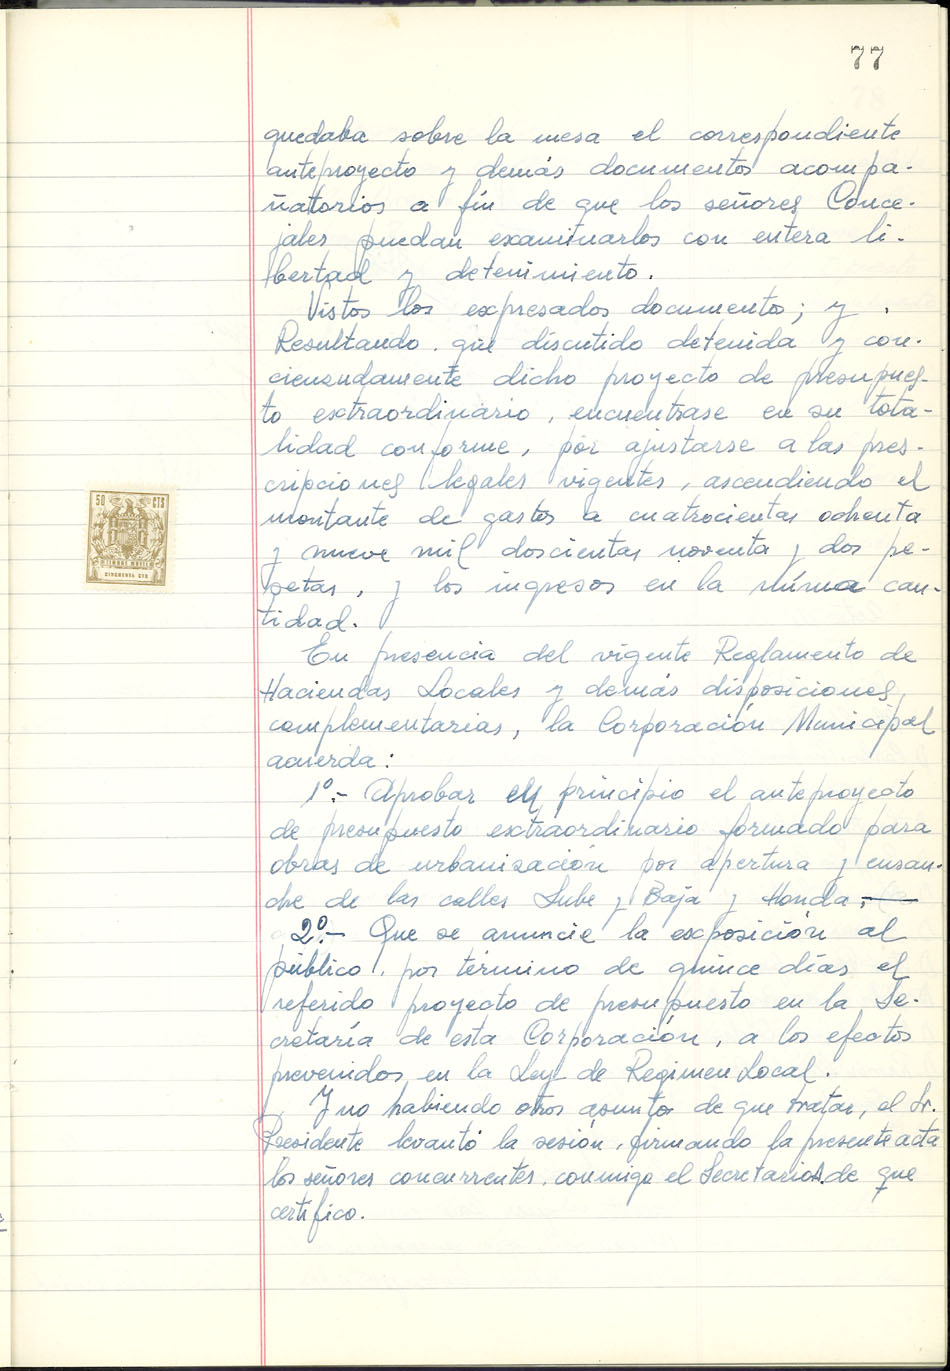 77
quedaba sobre la mesa el correspondiente
anteproyecto y demás documentos acompa-
ñatorios a fin de que los señores Conce-
jales puedan examinarlos con entera li-
bertad y detenimiento.
Vistos los expresados documentos; y
Resultando que discutido detenida y con-
cienzudamente dicho proyecto de presupues-
to extraordinario, encuentrase en su tota-
lidad conforme, por ajustarse a las pres-
cripciones legales vigentes, ascendiendo el
montante de gastos a cuatrocientas ochenta
y nueve mil doscientas noventa y dos pe-
setas, y los ingresos en la misma can-
tidad.
En presencia del vigente Reglamento de
Haciendas Locales y demás disposiciones
complementarias, la Corporación Municipal
acuerda:
1º.- Aprobar en principio el anteproyecto
de presupuesto extraordinario formado para
obras de urbanización por apertura y ensan-
che de las calles Sube y Baja y Honda.-
2º.- Que se anuncie la exposición al
público, por término de quince días el
referido proyecto de presupuesto en la Se-
cretaría de esta Corporación, a los efectos
prevenidos en la Ley de Regimen Local.
Y no habiendo otros asuntos de que tratar, el Sr.
Presidente levantó la sesión, firmando la presente acta
los señores concurrentes, conmigo el Secretario A. de que
certifico.
50 CTS
TIMBRE MOVIL
CINCUENTA CTS